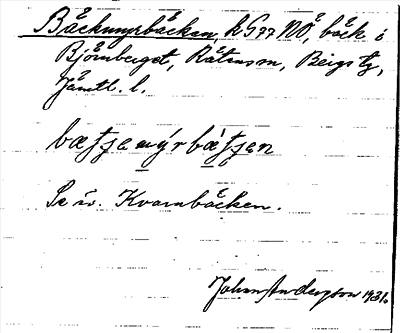 Bäckmyrbäcken, k G 77 NÖ, bäck i
Björnberget, Rätansm, Bergs tg,
Jämtl. l.
bæʃʃemy̱rbæ̀ʃʃen
Se sv. Kvarnbäcken.
John Anderzson 1931.